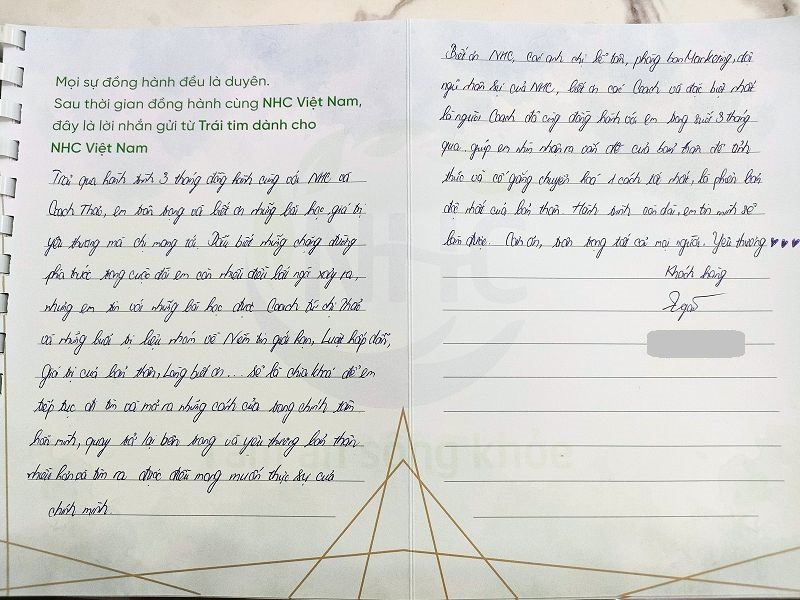 Mọi sự đồng hành đều là duyên.
Sau thời gian đồng hành cùng NHC Việt Nam,
đây là lời nhắn gửi từ Trái tim dành cho
NHC Việt Nam
Trải qua hành trình 3 tháng đồng hành cùng với NHC và
Coach Thảo, em trân trọng và biết ơn những bài học, giá trị
yêu thương mà chị mang tới. Dẫu biết những chặng đường
phía trước trong cuộc đời em còn nhiều điều bất ngờ xảy ra,
nhưng em tin với những bài học được Coach từ chị Thảo
và những buổi trị liệu nhóm về Niềm tin giới hạn, Luật hấp dẫn,
Giá trị của bản thân, Lòng biết ơn... sẽ là chìa khoá để em
tiếp tục đi tìm và mở ra những cánh cửa trong chính tâm
hồn mình, quay trở lại bên trong và yêu thương bản thân
nhiều hơn và tìm ra được điều mong muốn thực sự của
chính mình.
Biết ơn NHC, các anh chị lễ tân, phòng ban Marketing, đội
ngũ nhân sự của NHC, biết ơn các Coach và đặc biệt nhất
là người Coach đã cùng đồng hành với em trong suốt 3 tháng
qua. giúp em nhìn nhận ra vấn đề của bản thân để tỉnh
thức và cố gắng chuyển hoá 1 cách tốt nhất, là phiên bản
đẹp nhất của bản thân. Hành trình còn dài, em tin mình sẽ
làm được. Cảm ơn, trân trọng tất cả mọi người. Yêu thương ♥♥♥
Khách hàng
NHC
Tâm an sống khỏe